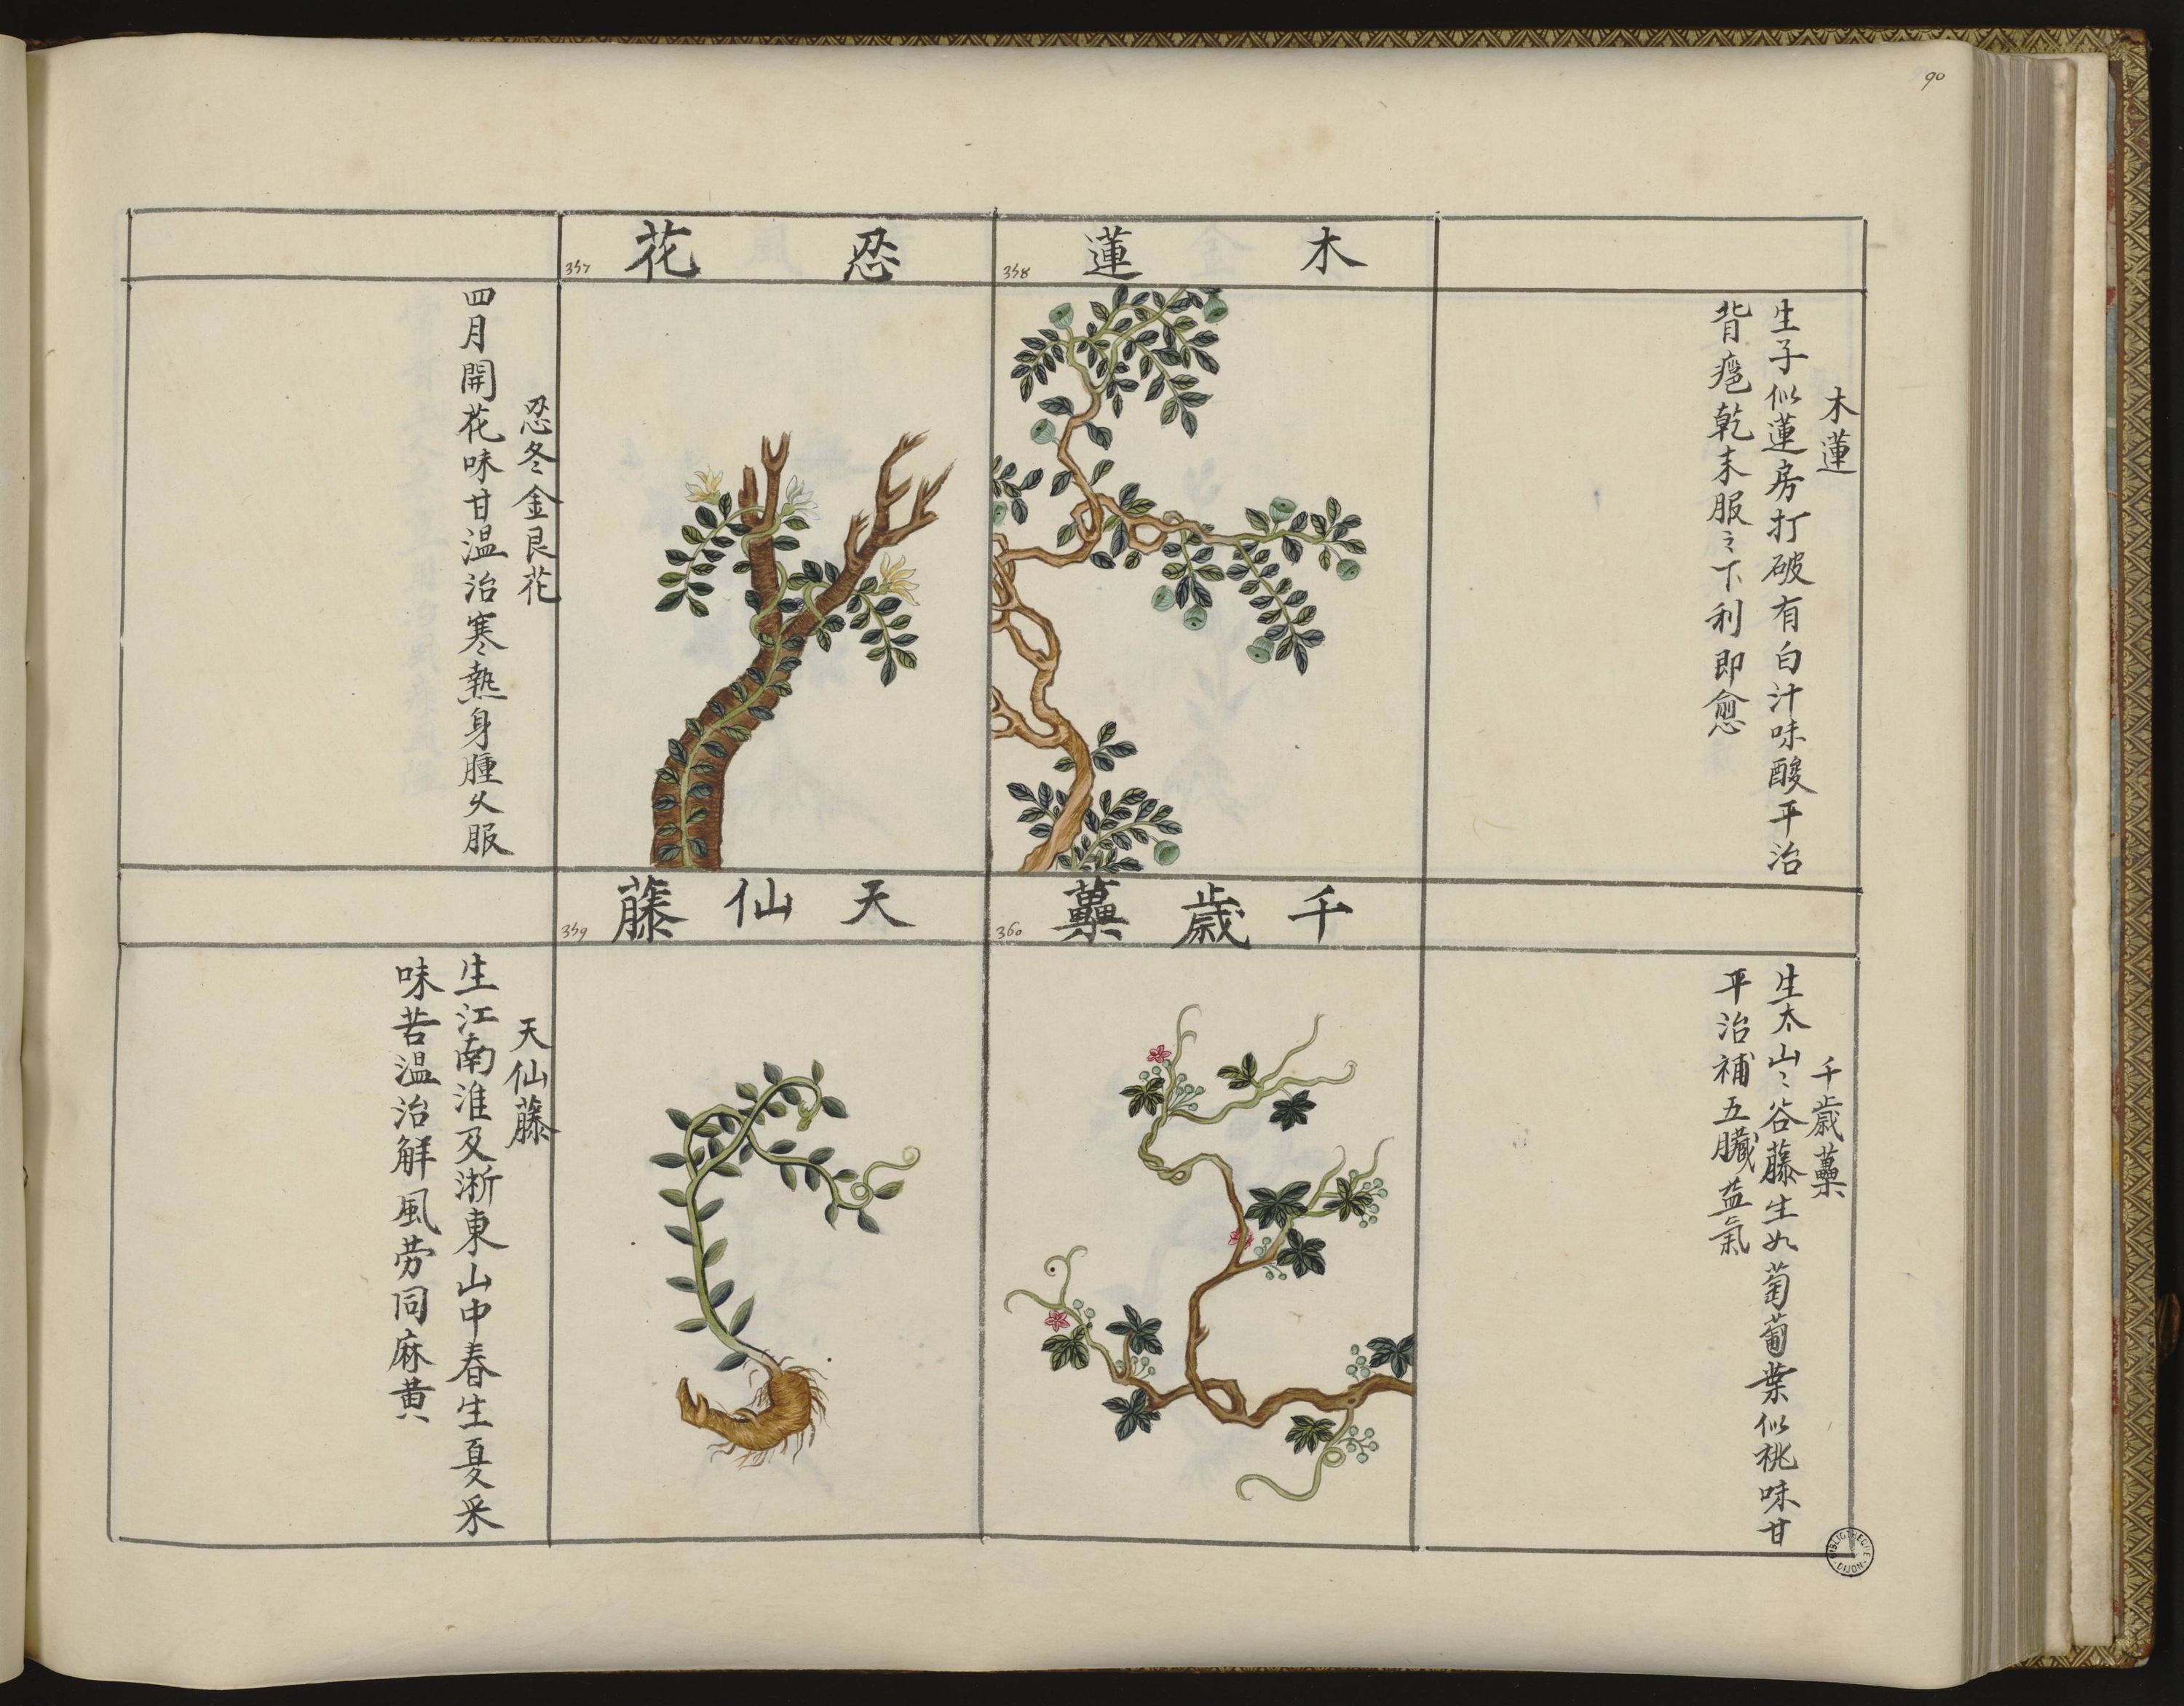 90
木蓮
358
木蓮
生子似蓮房打破有白汁味酸平治
背瘡乾末服〻下利即愈
忍花
357
忍冬金艮花
四月開花味甘温治寒熱身腫久服
千歲蘽
360
千歲蘽
生太山〻谷藤生如萄葡葉似桃味甘
平治補五臟益氣
天仙藤
359
天仙藤
生江南淮及浙東山中春生夏采
味苦温治解風劳同麻黄
BIBLIOTHEQUE DIJON